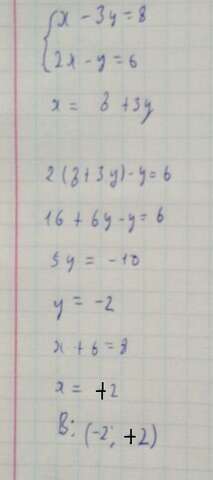 {x - 3y = 8
2x - y = 6
x = 8 + 3y
2(8 + 3y) - y = 6
16 + 6y - y = 6
5y = -10
y = -2
x + 6 = 8
x = +2
В: (-2; +2)